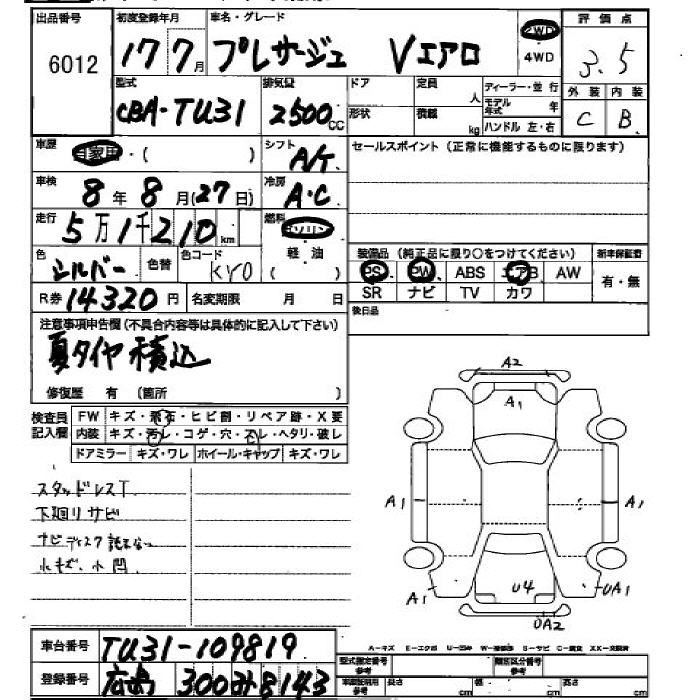 出品番号 初度登録年月 車名・グレード 2WD 評価点
6012 17 7月 プレサージュ Vエアロ 4WD 3.5
型式 排気量 ドア 定員 人 ディーラー・並行 外装 内装
CBA-TU31 2500cc 形状 積載 kg モデル年式 年 C B
ハンドル 左・右
車歴 自家用・( ) シフト A/T セールスポイント (正常に機能するものに限ります)
車検 8年8月(27日) 冷房 A・C
走行 5万1千210km 燃料 ガソリン
色 シルバー 色替 色コード KY0 軽油 ( ) 装備品 (純正品に限り○をつけてください) 新車保証書
PS PW ABS エアB AW 有・無
R券 14320円 名変期限 月 日 SR ナビ TV カワ
注意事項申告欄(不具合内容等は具体的に記入して下さい) 後日品
夏タイヤ積込
修復歴 有 (箇所 )
検査員記入欄 FW キズ・飛石・ヒビ割・リペア跡・X要
内装 キズ・汚レ・コゲ・穴・スレ・ヘタリ・破レ
ドアミラー キズ・ワレ ホイール・キャップ キズ・ワレ
スタッドレスT
下廻リサビ
ナビディスク読まない
小キズ、小凹
A2
A1
A1 A1
A1 U4 UA1
UA2
A-キズ E-エクボ U-凹み W-補修跡 S-サビ C-腐食 XX-交換済
車台番号 TU31-109819
登録番号 広島 300み8143
型式指定番号 参考 類別区分番号 参考
車庫証明用 参考 長さ cm 幅 cm 高さ cm